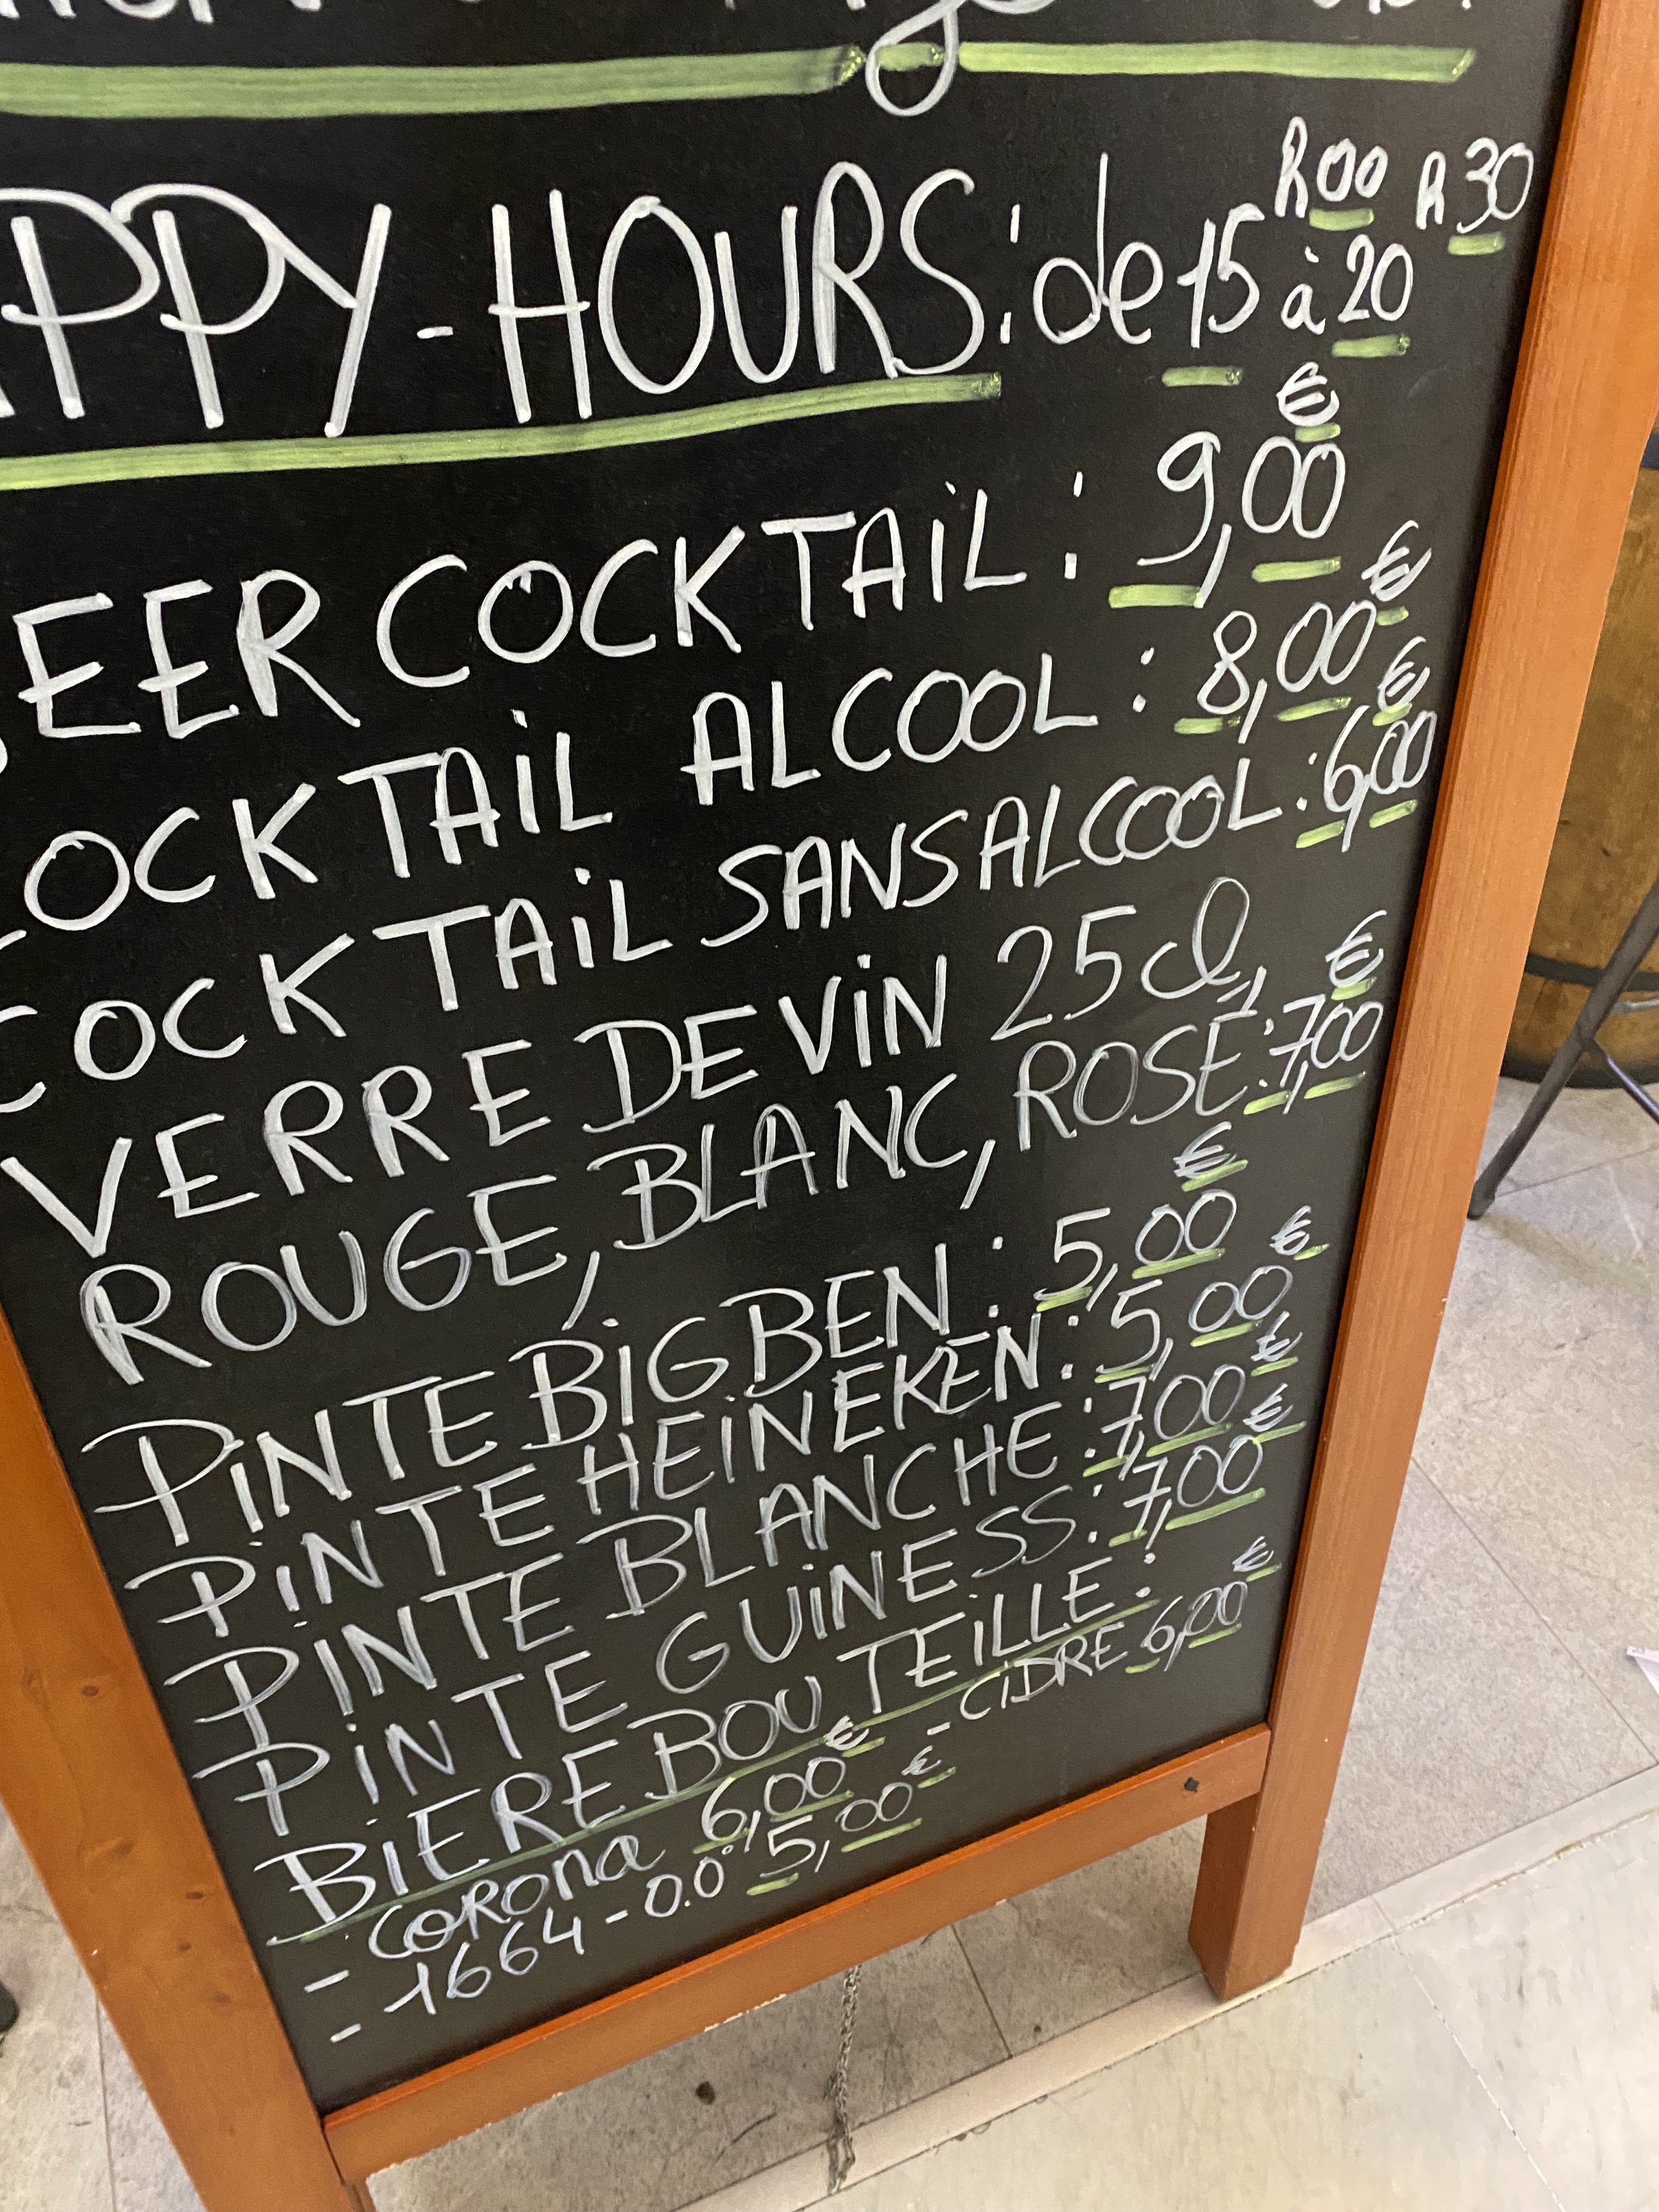 APPY-HOURS: de 15h00 à 20h30
BEER COCKTAIL: 9,00€
COCKTAIL ALCOOL: 8,00€
COCKTAIL SANS ALCOOL: 6,00€
VERRE DE VIN 25cl,
ROUGE, BLANC, ROSÉ: 7,00€
PINTE BIG BEN: 5,00€
PINTE HEINEKEN: 5,00€
PINTE BLANCHE: 7,00€
PINTE GUINESS: 7,00€
BIERE BOUTEILLE:
- CORONA 6,00€ - CIDRE 6,00€
- 1664-0.0° 5,00€